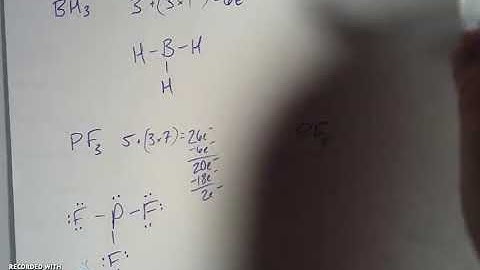 BH₃ 3+(3×1)=6e⁻
H-B-H
H
PF₃ 5+(3×7)=26e⁻
-6e⁻
20e⁻
-18e⁻
2e⁻
PF
:F̈-P̈-F̈:
F
RECORDED WITH